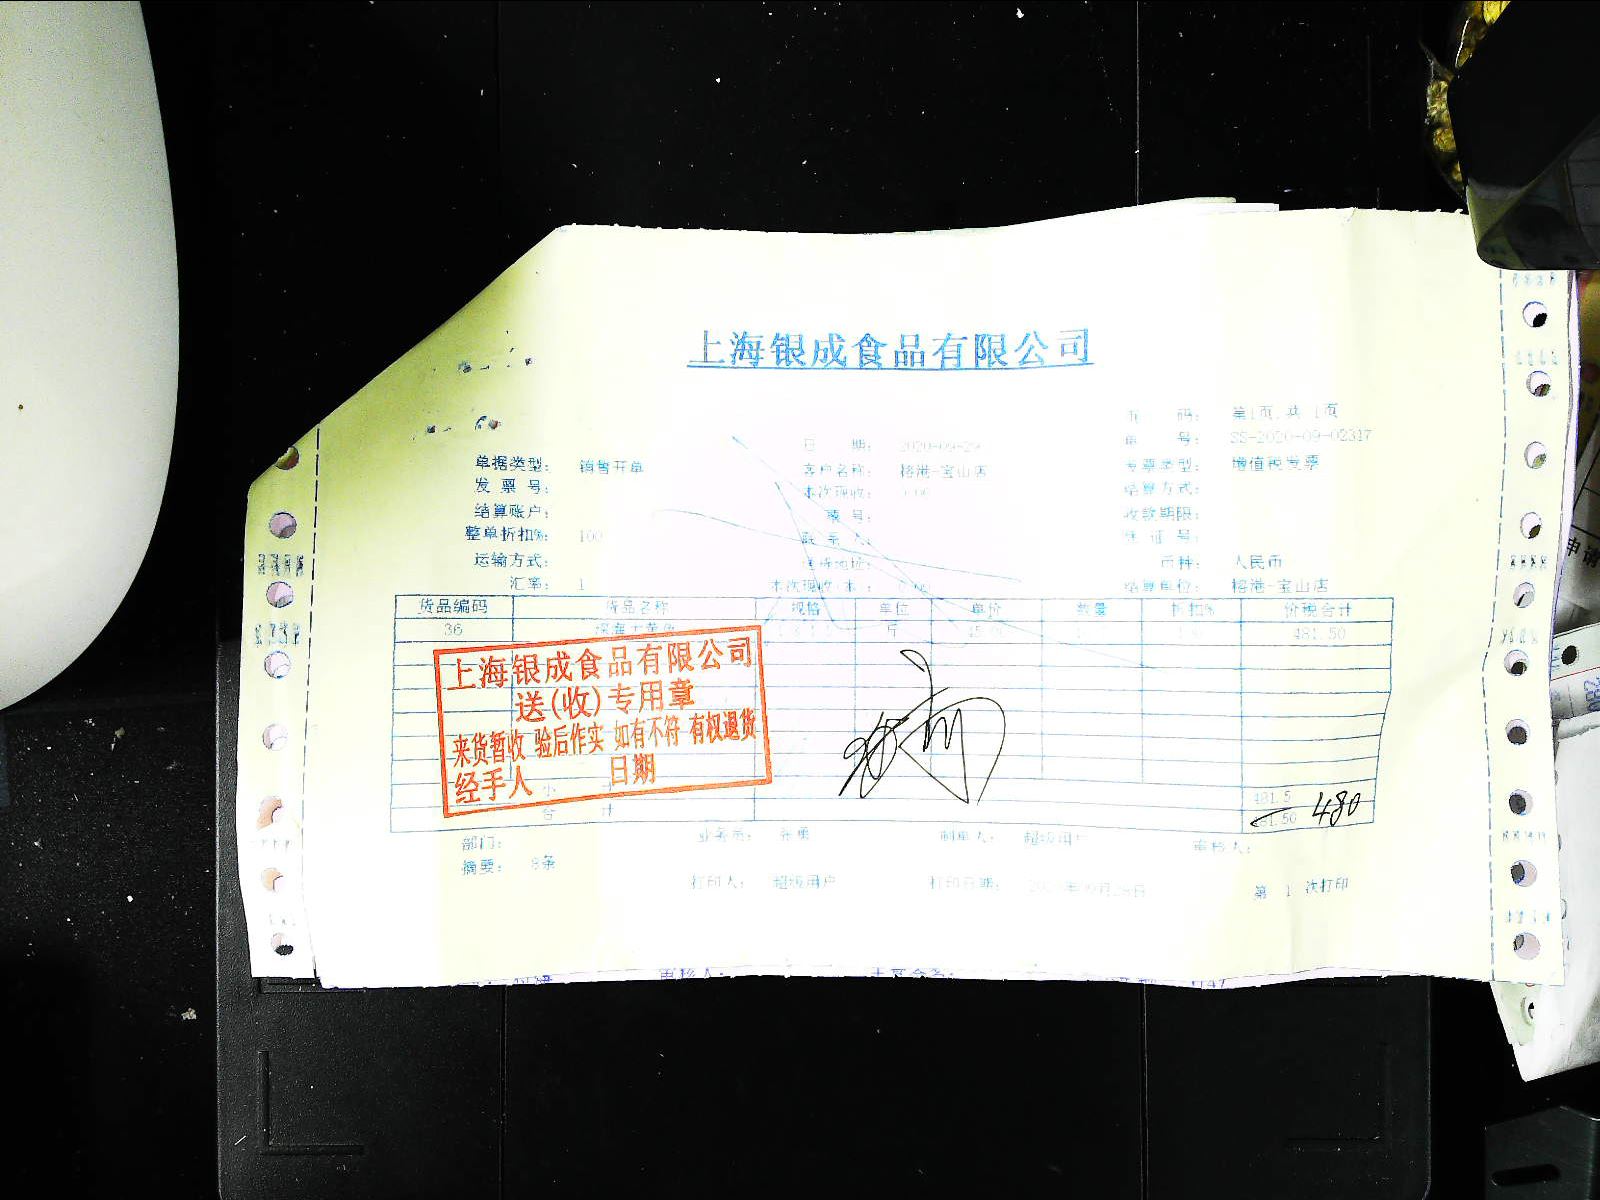 上海银成食品有限公司
页 码： 第1页,共 1页
日 期： 2020-09-29 单 号： SS-2020-09-02317
单据类型： 销售开单 客户名称： 榕港-宝山店 发票类型： 增值税发票
发 票 号： 本次现收： 0.00 结算方式：
结算账户： 票 号： 收款期限：
整单折扣%： 100 联 系 人： 凭 证 号：
运输方式： 送货地址： 币种： 人民币
汇率： 1 本次现收(本 ： 0.00 结算单位： 榕港-宝山店
货品编码 货品名称 规格 单位 单价 数量 折扣% 价税合计
36 斤 481.50
上海银成食品有限公司
送(收)专用章
来货暂收 验后作实 如有不符 有权退货
经手人 日期
小 481.5
合 计 481.50 480
部门： 业务员： 张勇 制单人： 超级用户 审核人：
摘要： 8条
打印人： 超级用户 打印日期： 第 1 次打印
申请